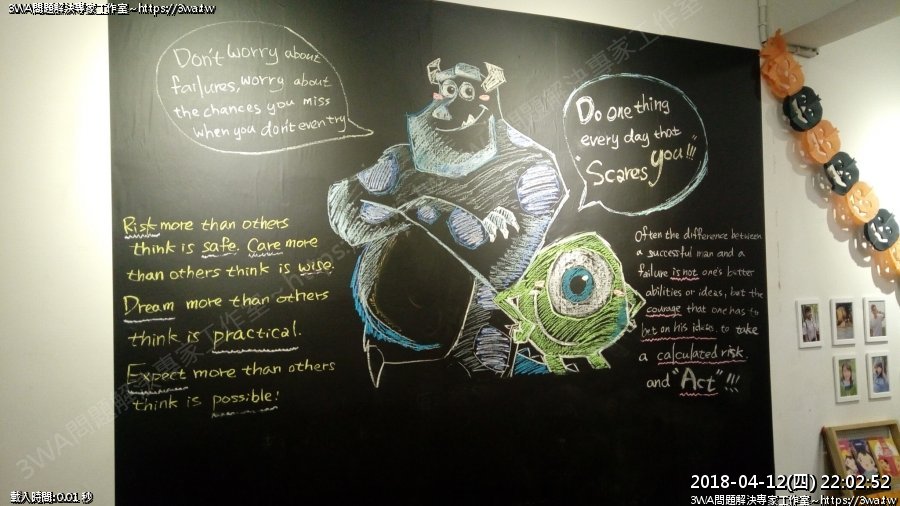 3WA問題解決專家工作室~https://3wa.tw
Don't worry about
failures, worry about
the chances you miss
when you don't even try
Do one thing
every day that
"Scares you"!!!
Risk more than others
think is safe. Care more
than others think is wise.
Dream more than others
think is practical.
Expect more than others
think is possible!
Often the difference between
a successful man and a
failure is not one's better
abilities or ideas, but the
courage that one has to
bet on his ideas, to take
a calculated risk.
and "Act" !!!
3WA問題解決專家工作室~https://3wa.tw
載入時間:0.01 秒
2018-04-12(四) 22:02:52
3WA問題解決專家工作室~https://3wa.tw